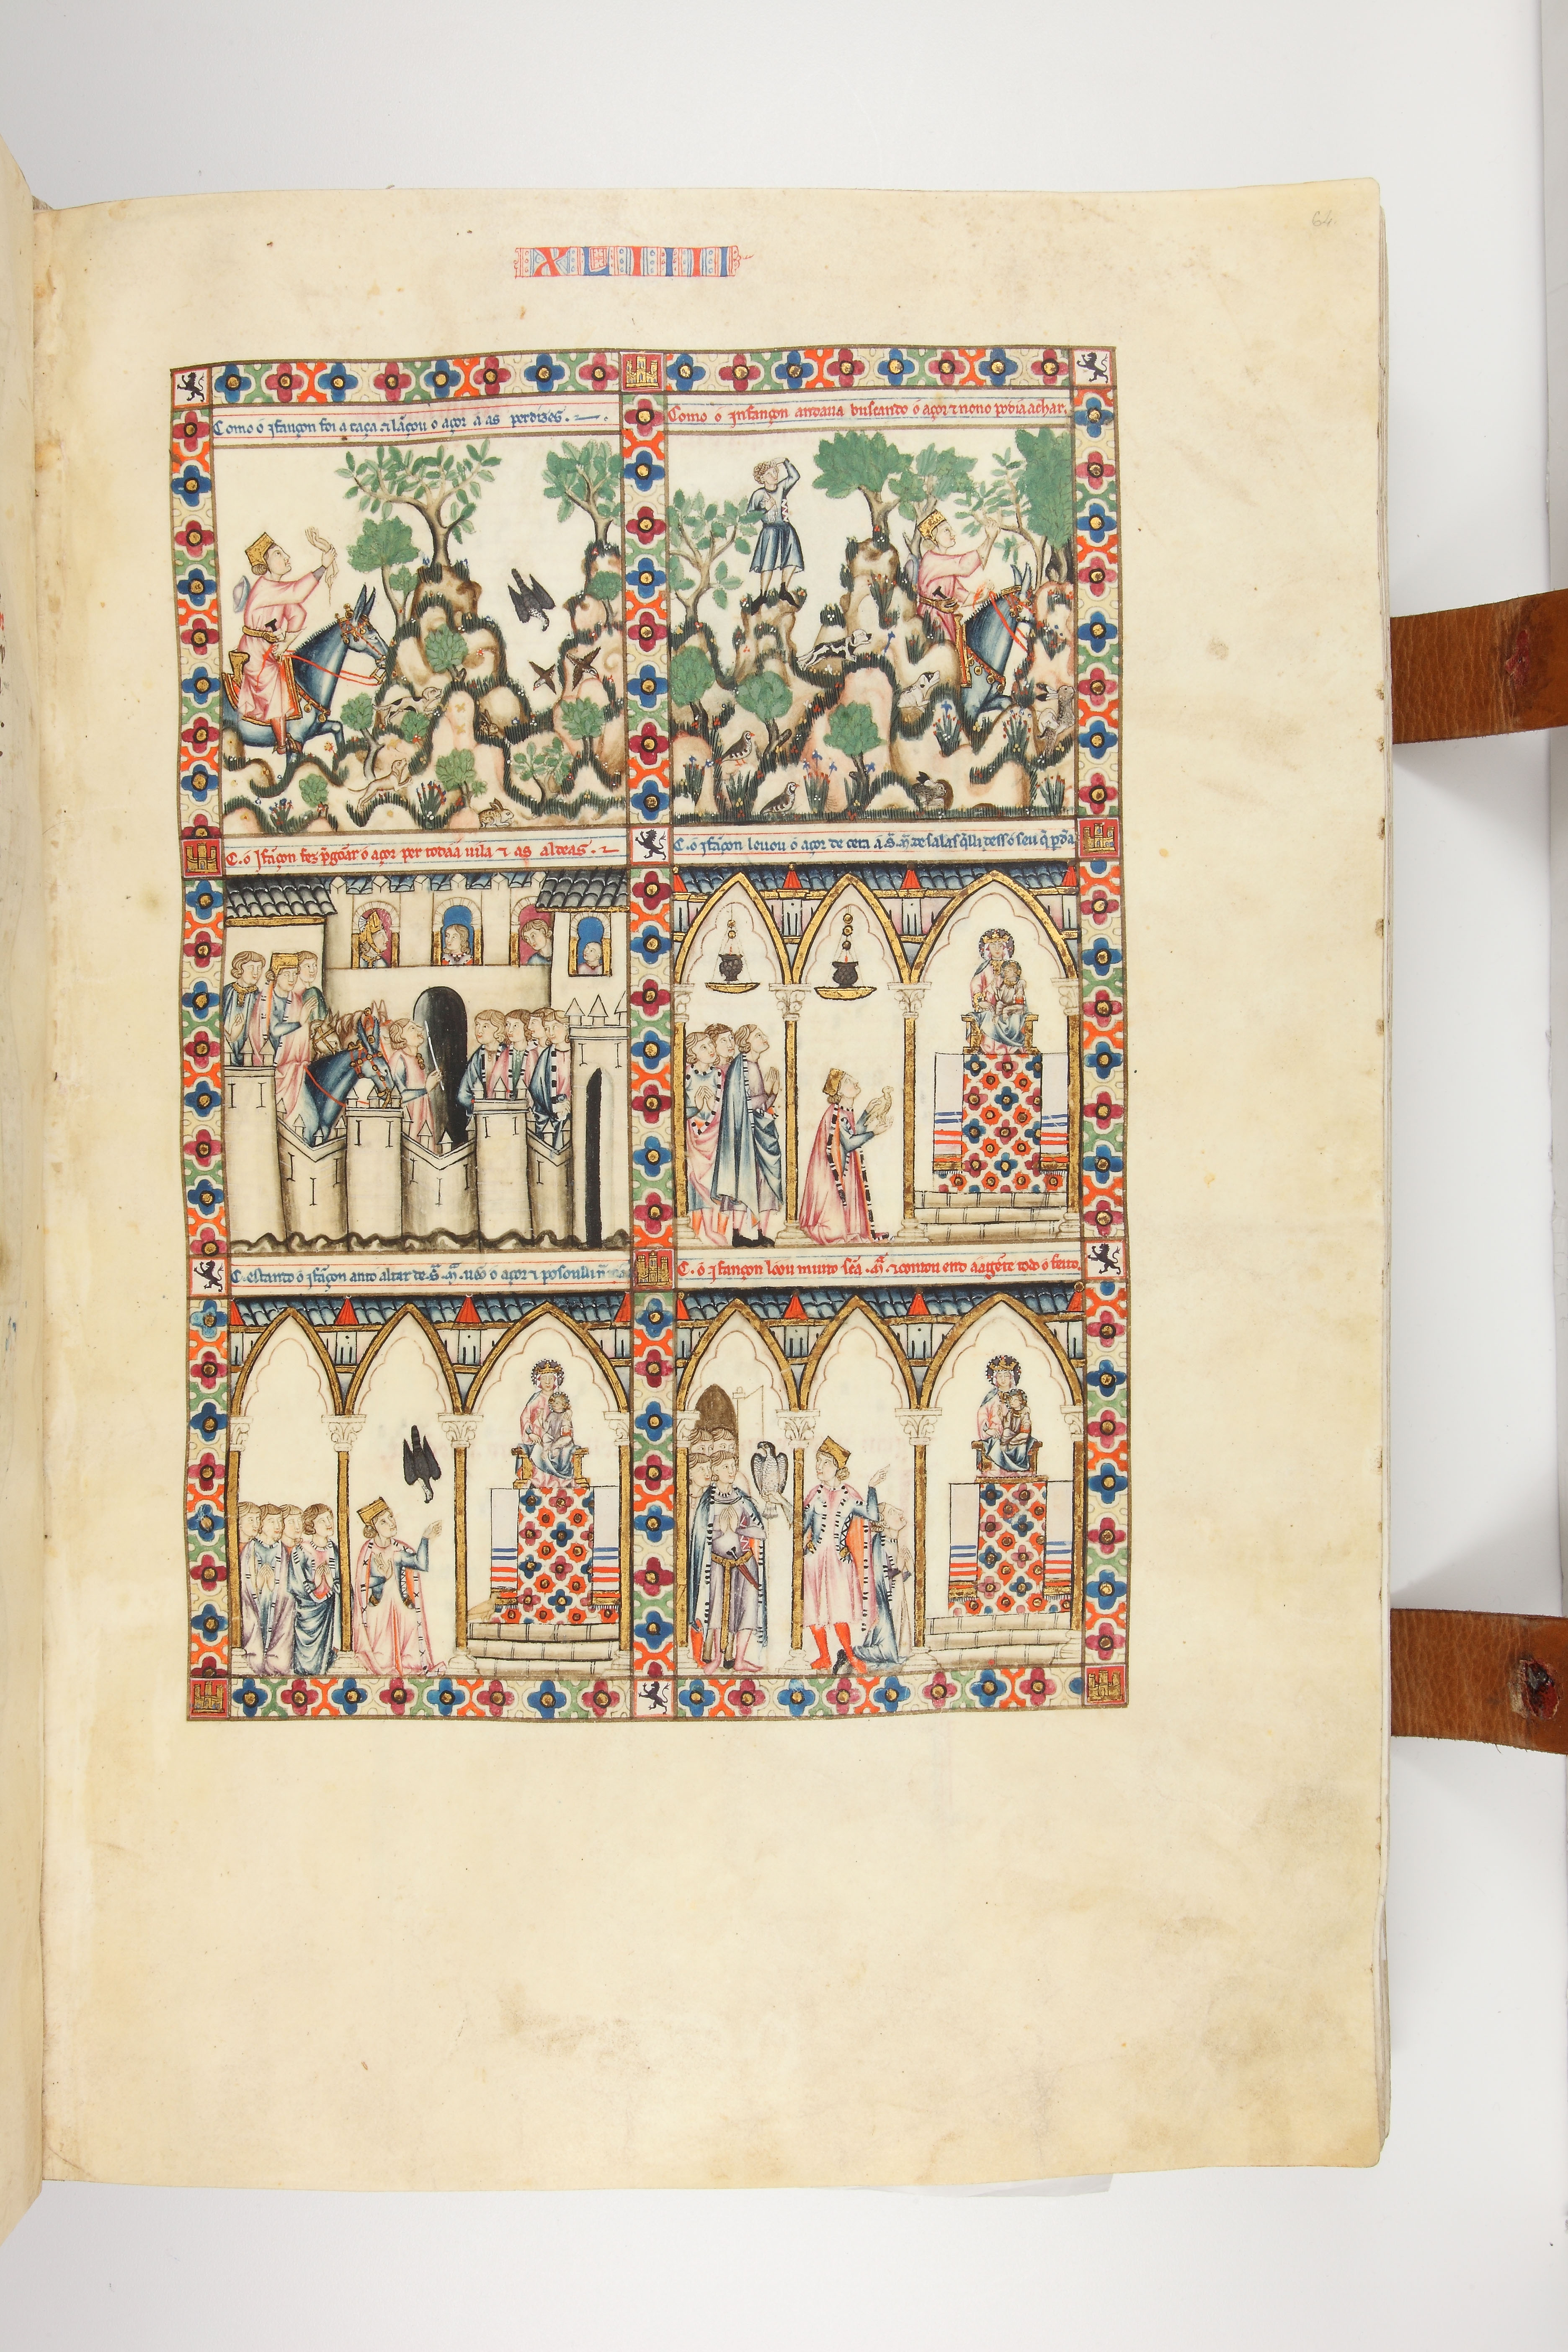 64
XLIIII
Como o ifançon foi a caça ⁊ lãçou o açor a as perdizes.
Como o Infançon andaua buscando o açor ⁊ nono podia achar.
C. o Ifançon fez p̃goar o açor per toda a uila ⁊ as aldeas.
C. o ifançon leuou o açor de cera a S. M̃. de salas q̃lli dess o seu q̃ pda
C. estando o ifãçon anto altar de S. M̃. uẽo o açor ⁊ posoulli
C. o ifançon loou muito sc̃a. M̃. ⁊ contou end a a gẽte todo o feito.